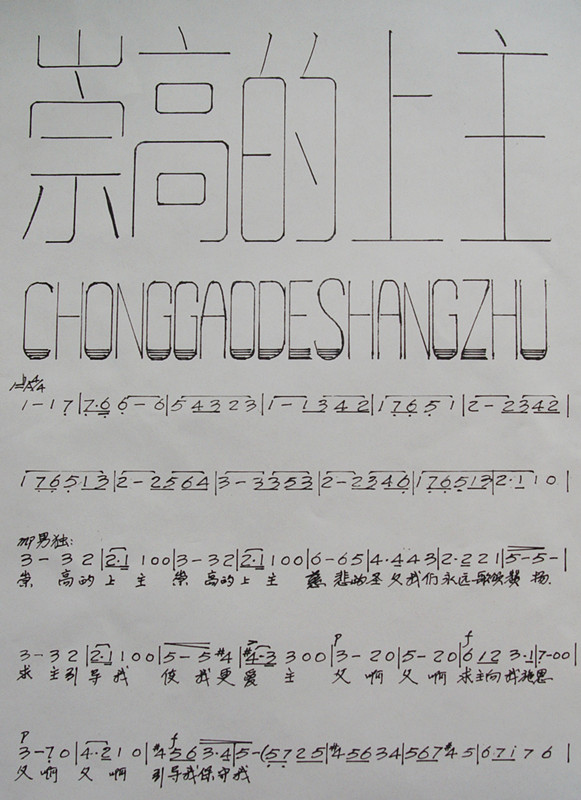 崇高的上主
CHONGGAODESHANGZHU
1 - 1 7 | 7·6 6 - 6 | 5 4 3 2 2 3 | 1 - 1 3 4 2 | 1 7 6 5 1 | 2 - 2 3 4 2 |
1 7 6 5 1 3 | 2 - 2 5 6 4 | 3 - 3 3 5 3 | 2 - 2 3 4 6 | 1 7 6 5 1 3 | 2·1 1 0 |
男独:
3 - 3 2 | 2·1 1 0 0 | 3 - 3 2 | 2·1 1 0 0 | 6 - 6 5 | 4·4 4 3 | 2·2 2 1 | 5 - 5 - |
崇 高的上主 崇 高的上主 慈悲的圣父我们永远歌颂赞扬.
3 - 3 2 | 2·1 1 0 0 | 5 - 5 #4 | #4·3 3 0 0 | p 3 - 2 0 | 5 - 2 0 | f 6 1 2 3·1 | 7 - 0 0 |
求主引导我 使我更爱主 父啊 父啊 求主向我施恩.
p 3 - 7 0 | 4·2 1 0 | #4 f 5 6 3·4 | 5 - (5 7 2 5 | #4 5 6 3 4 | 5 6 7 #4 5 | 6 7 i 7 6 |
父啊 父啊 引导我保守我